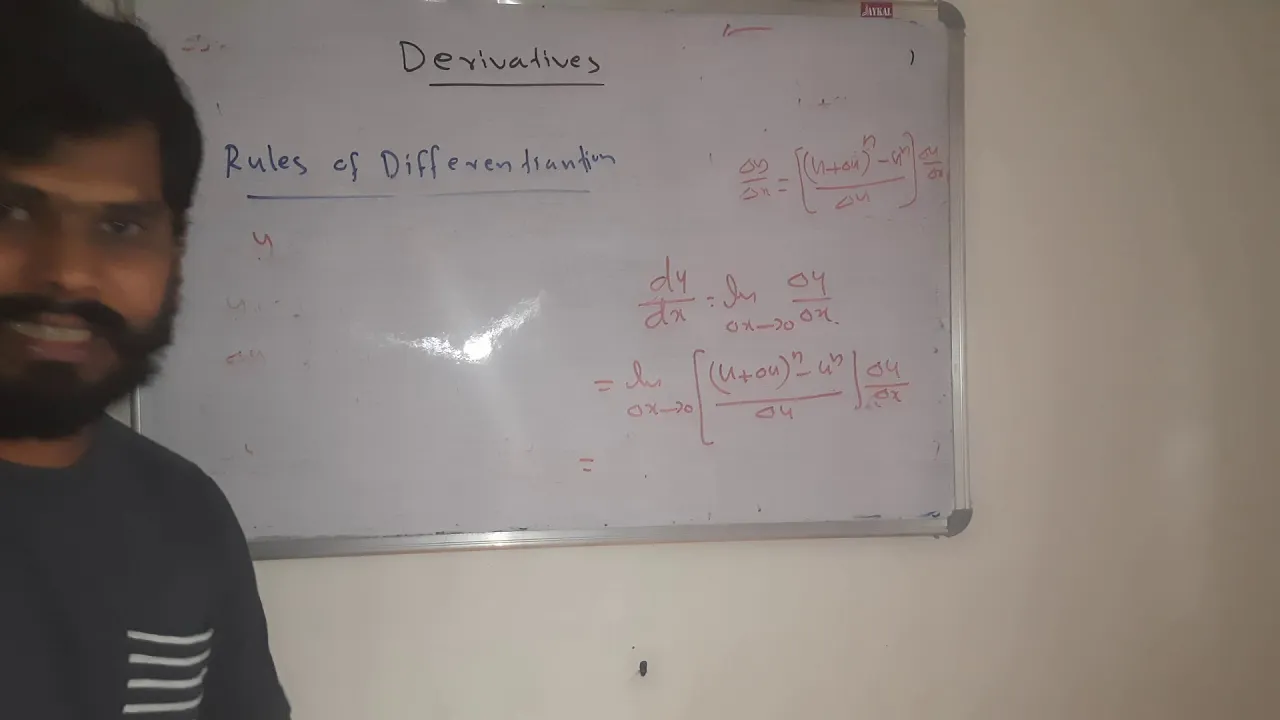 JAYKAL
Derivatives
Rules of Differentiantion
Δy/Δx = [((u+Δu)^n - u^n)/Δu] Δu/Δx
y
dy/dx = lim Δx→0 Δy/Δx
= lim Δx→0 [((u+Δu)^n - u^n)/Δu] Δu/Δx
=